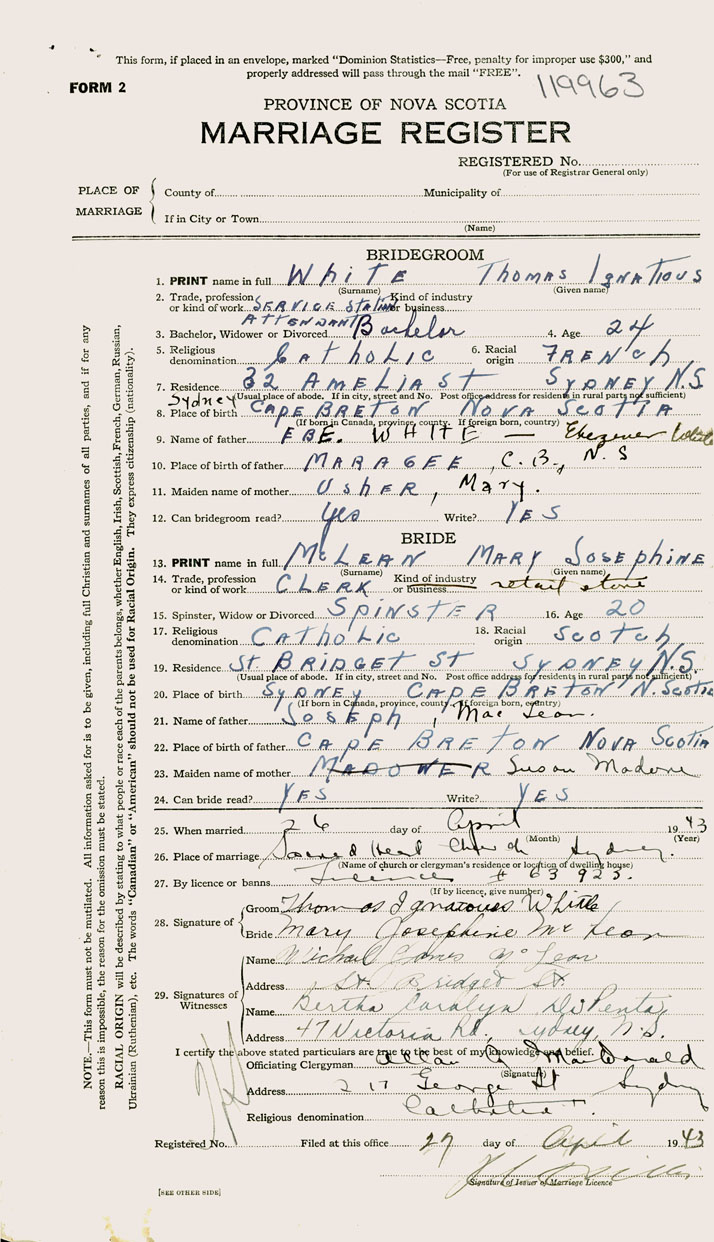 This form, if placed in an envelope, marked "Dominion Statistics—Free, penalty for improper use $300," and
properly addressed will pass through the mail "FREE".
FORM 2
119963
PROVINCE OF NOVA SCOTIA
MARRIAGE REGISTER
REGISTERED No.
(For use of Registrar General only)
PLACE OF MARRIAGE
County of Municipality of
If in City or Town
(Name)
BRIDEGROOM
1. PRINT name in full White Thomas Ignatious
(Surname) (Given name)
2. Trade, profession or kind of work SERVICE STATION ATTENDANT Kind of industry or business
3. Bachelor, Widower or Divorced Bachelor 4. Age 24
5. Religious denomination Catholic 6. Racial origin FRENCH
7. Residence 32 AMELIA ST SYDNEY N.S
(Usual place of abode. If in city, street and No. Post office address for residents in rural parts not sufficient)
8. Place of birth Sydney CAPE BRETON NOVA SCOTTIA
(If born in Canada, province, county. If foreign born, country)
9. Name of father EBE. WHITE — Ebezener White
10. Place of birth of father MARAGEE, C.B., N.S
11. Maiden name of mother USHER, Mary.
12. Can bridegroom read? yes Write? YES
BRIDE
13. PRINT name in full McLEAN MARY JOSEPHINE
(Surname) (Given name)
14. Trade, profession or kind of work CLERK Kind of industry or business retail store
15. Spinster, Widow or Divorced SPINSTER 16. Age 20
17. Religious denomination CATHOLIC 18. Racial origin Scotch
19. Residence St BRIDGET ST SYDNEY N.S.
(Usual place of abode. If in city, street and No. Post office address for residents in rural parts not sufficient)
20. Place of birth SYDNEY CAPE BRETON N. Scotia
(If born in Canada, province, county. If foreign born, country)
21. Name of father JOSEPH, MacLean.
22. Place of birth of father CAPE BRETON NOVA SCOTIA
23. Maiden name of mother MADOWER Susan Madore
24. Can bride read? YES Write? YES
25. When married 26 day of April 1943
(Month) (Year)
26. Place of marriage Sacred Heart Church Sydney.
(Name of church or clergyman's residence or location of dwelling house)
27. By licence or banns Licence # 63923.
(If by licence, give number)
28. Signature of
Groom Thomas Ignatouss White
Bride Mary Josephine McLean
29. Signatures of Witnesses
Name Michael James McLean
Address St. Bridget St.
Name Bertha Caralyn DiPenta
Address 47 Victoria Rd., Sydney, N.S.
I certify the above stated particulars are true to the best of my knowledge and belief.
Officiating Clergyman Allan J MacDonald
(Signature)
Address 217 George St Sydney
Religious denomination Catholic.
Registered No. Filed at this office 27 day of April 1943
Signature of Issuer of Marriage Licence
[SEE OTHER SIDE]
NOTE.—This form must not be mutilated. All information asked for is to be given, including full Christian and surnames of all parties, and if for any
reason this is impossible, the reason for the omission must be stated.
RACIAL ORIGIN will be described by stating to what people or race each of the parents belongs, whether English, Irish, Scottish, French, German, Russian,
Ukrainian (Ruthenian), etc. The words "Canadian" or "American" should not be used for Racial Origin. They express citizenship (nationality).